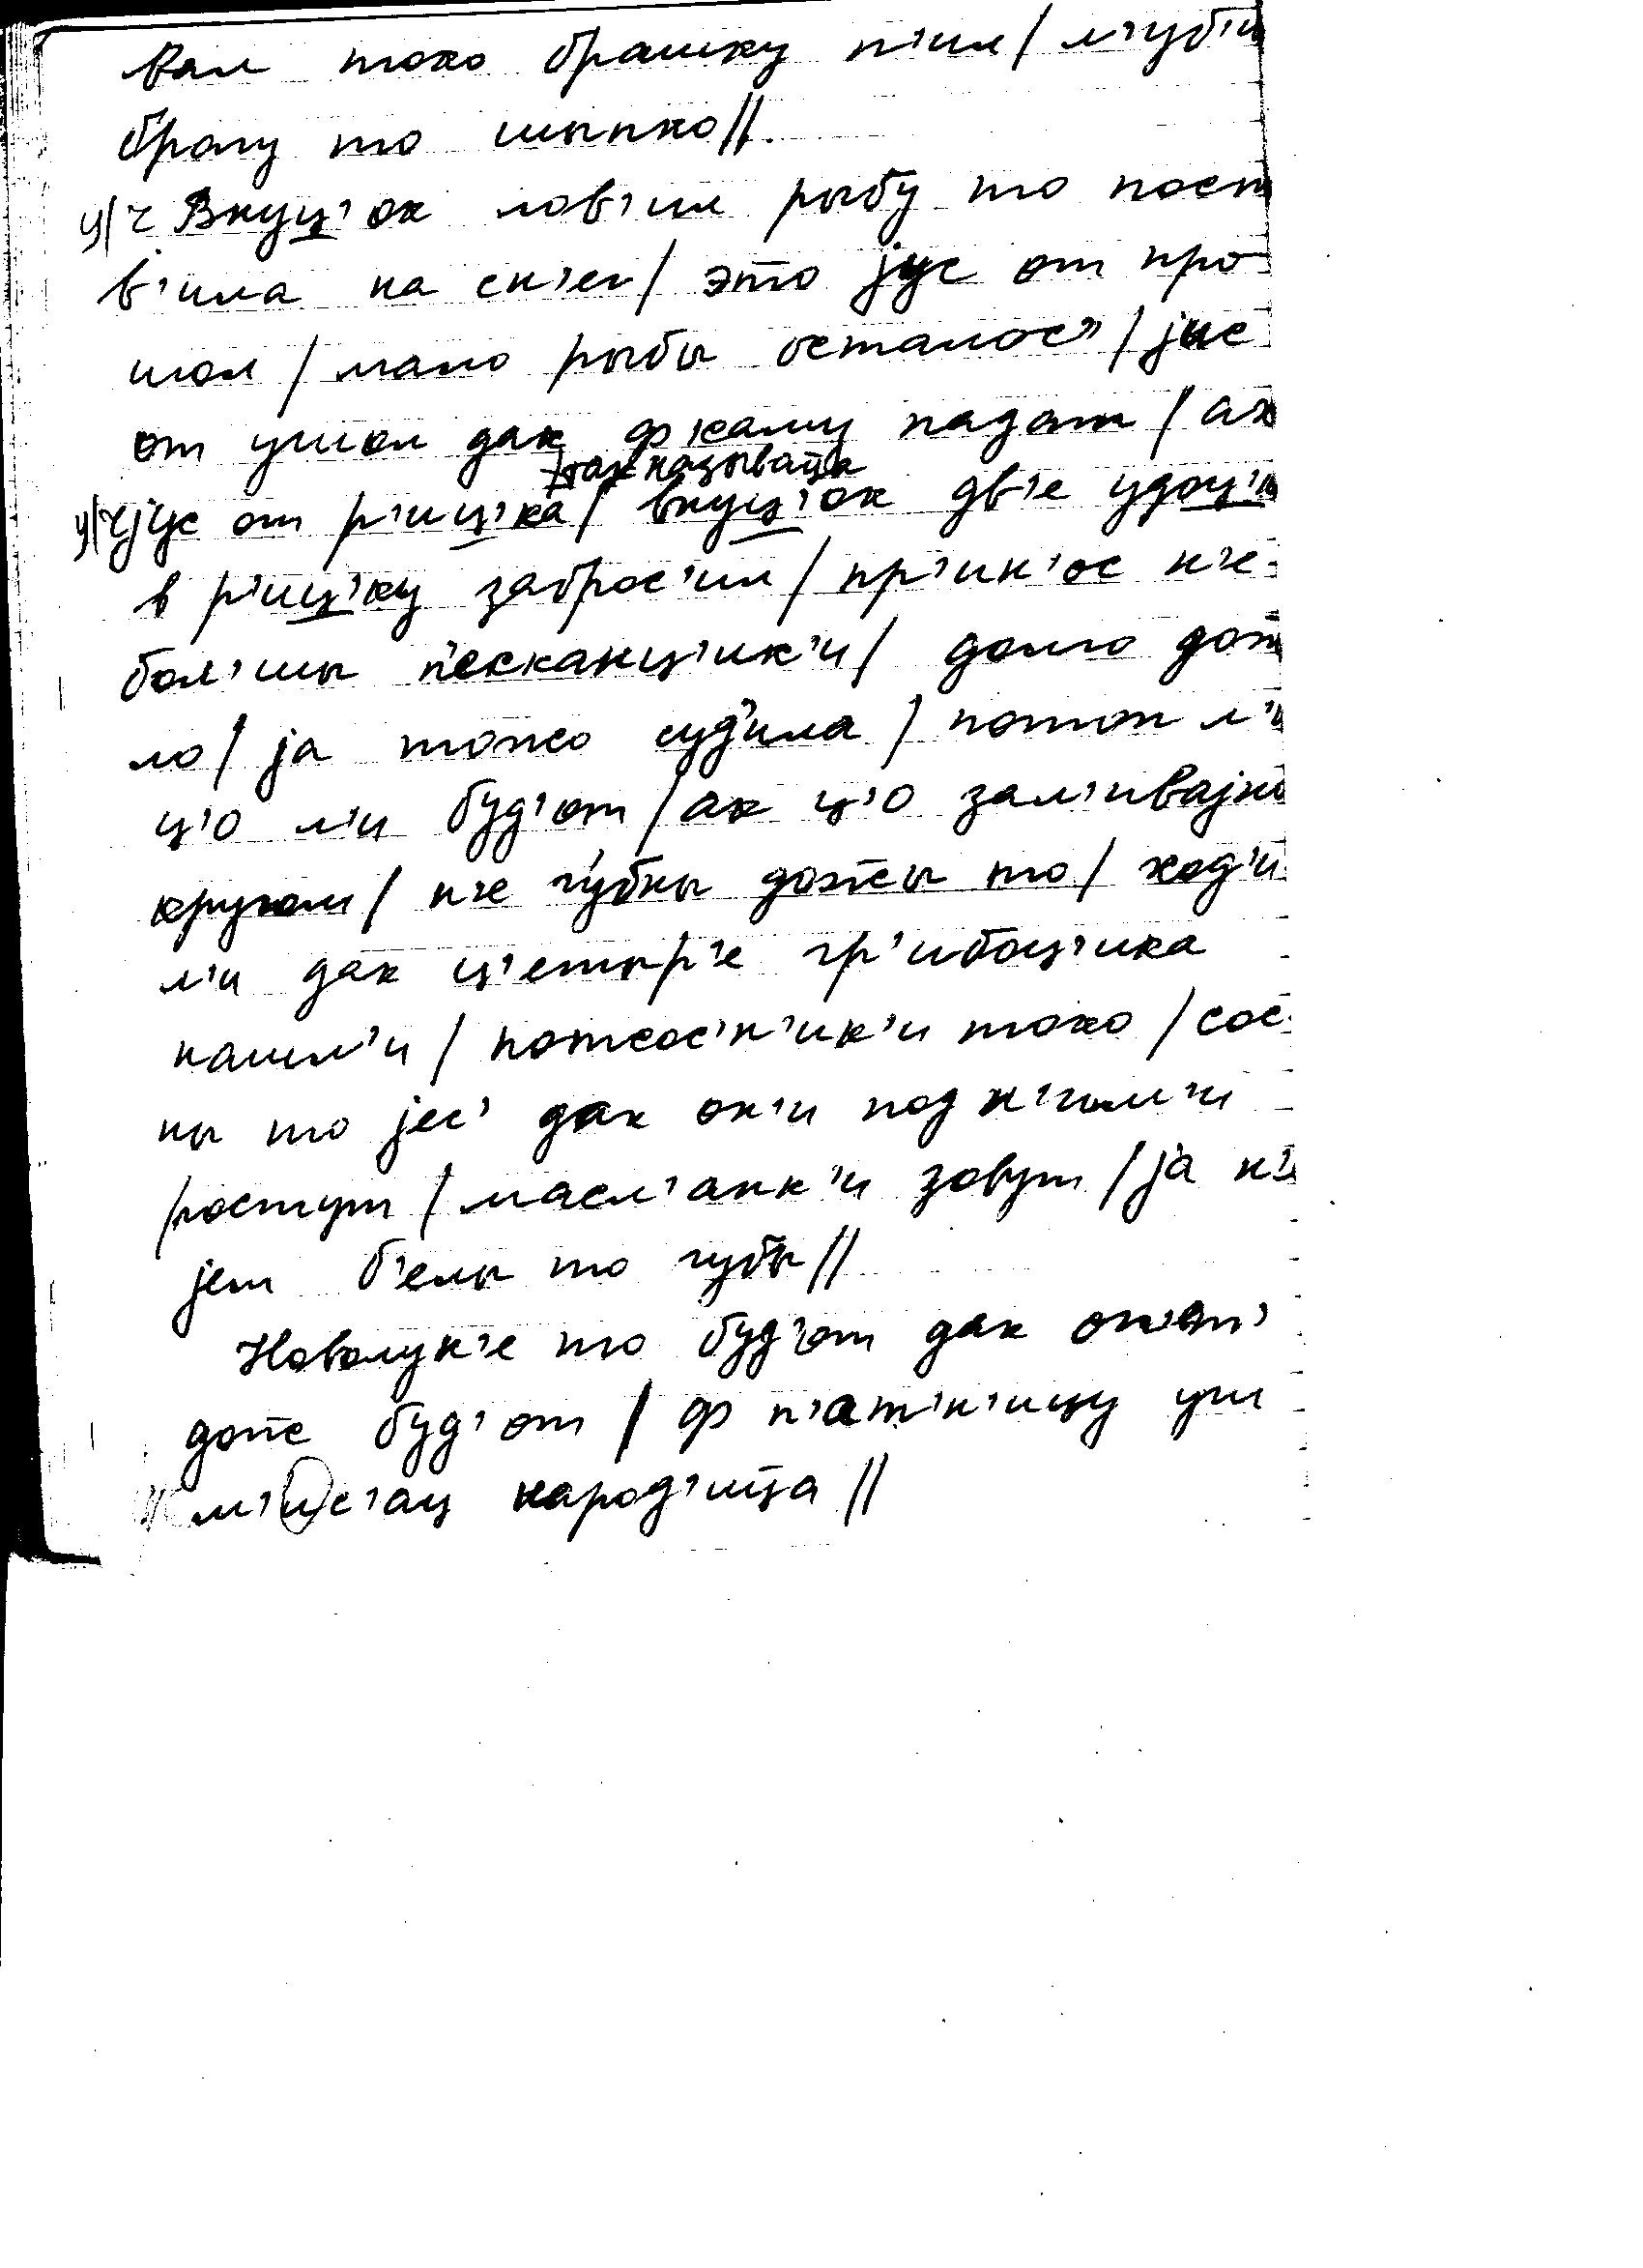 вал токо брашку п'ил / л'уб'ил
брагу то шыпко //
ц/ч Внуц'ок лов'ил рыбу то пост
в'ила на сн'ег / это јус от про
шол / мало рыбы осталос' / јис
от ушол дак ф јаму падат / ак
так называйца
ц/ч јус от р'иц'ка / внуц'ок дв'е удоц'к
в р'иц'ку заброс'ил / пр'ин'ос н'е-
бол'шы п'есканц'ик'и / долго дож
ло / ја тожо суд'ила / потоп л'и
ц'о л'и буд'от / ак ц'о зал'ивајит
кругом / н'е губны дожжы то / ход'и
л'и дак ц'етыр'е гр'ибоц'ика
нашл'и / потсос'н'ик'и токо / сос-
ны то јес' дак он'и под н'им'и
ростут / масл'анк'и зовут / ја н'е
јем б'елы то губы //
Новолун'е то буд'от дак оп'ат'
дожж буд'от / ф п'ат'н'ицу уш
м'ис'ац народ'ица //